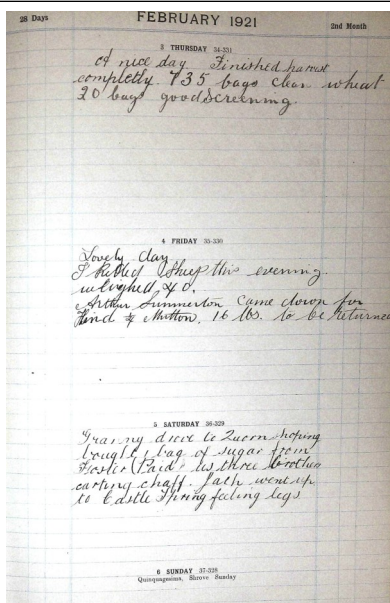 28 Days FEBRUARY 1921 2nd Month
3 THURSDAY 34-331
A nice day Finished harvest
completly. 735 bags clean wheat
20 bags good screening.
4 FRIDAY 35-330
Lovely day
I killed sheep this evening
weighed 40.
Arthur Summerton came down for
Hind ¼ Mutton. 16 lbs. to be returned
5 SATURDAY 36-329
Granny drove to Quorn shoping
bought 1 bag of sugar from
Foster (Paid) us three brothers
carting chaff. Jack went up
to Castle Spring feeling legs
6 SUNDAY 37-328
Quinquagesima, Shrove Sunday